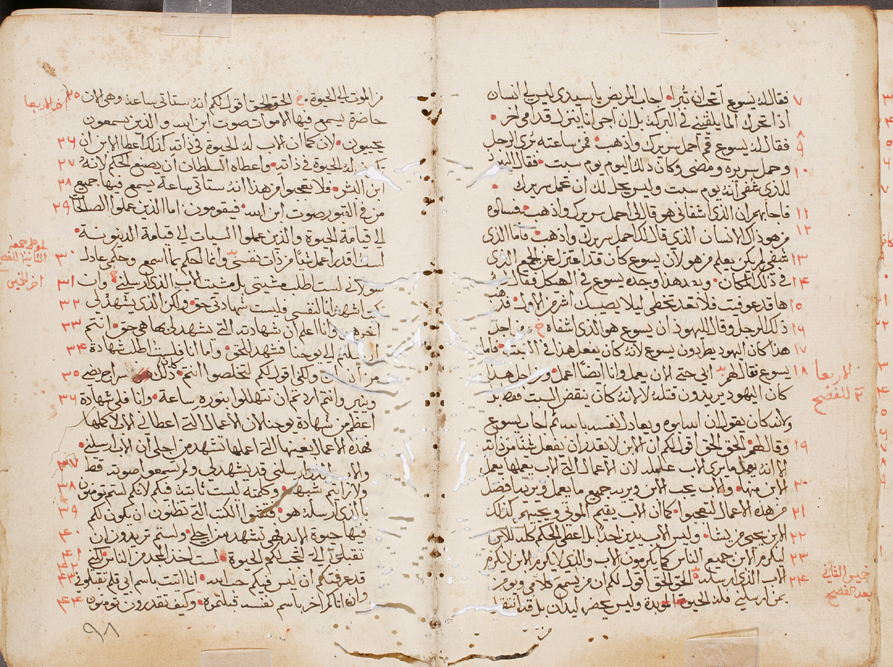 ٧ فقال له يسوع اتحب ان تبرا اجاب المريض يا سيدي ليس لي انسان
اذا تحرك الما يلقيني في البركة بل ان اجي انا ينزل قدامي اخر
٨ ٩ فقال له يسوع قم احمل سريرك واذهب ففي ساعته بري الرجل
١٠ وحمل سريره ومضي وكان ذلك اليوم يوم سبت فقال اليهود
للذي شفي انه يوم سبت وليس يحل لك ان تحمل سريرك
١١ فاجابهم ان الذي شفاني هو قال لي احمل سريرك واذهب فسالوه
١٢ من هو ذلك الانسان الذي قال لك احمل سريرك واذهب فاما الذي
١٣ شفي لم يكن يعلم من هو لان يسوع كان قد اعتزل عن الجمع الذي
١٤ في ذلك المكان وبعد هذا وجده يسوع في الهيكل فقال له
١٥ ها قد عوفيت فلا تعد تخطي ليلا يصيبك اشر من الاول فذهب
١٦ ذلك الرجل وقال لليهود ان يسوع هو الذي اشفاه من اجل
١٧ هذا كان اليهود يطردون يسوع لانه كان يفعل هذا في السبت فاما
١٨ يسوع فقال لهم ابي حتي الان يعمل وانا ايضا اعمل ومن اجل هذا
كان اليهود يريدون قتله لا لانه كان ينقض السبت فقط بل
ولانه كان يقول ان الله ابوه ويعادل نفسه بالله ثم اجاب يسوع
١٩ وقال لهم الحق الحق اقول لكم ان الابن لا يقدر ان يفعل شيا من ذاته
الا انه يعمل ما يري الاب عامله لان الاعمال التي الاب يعملها يعمل
٢٠ الابن مثله والاب يحب الابن ويريه جميع ما يعمل ويريه افضل
٢١ من هذه الاعمال لتعجبوا كما ان الاب يقيم الموتي ويحييهم كذلك
٢٢ الابن يحيي من يشا وليس الاب يدين احدا بل اعطي الحكم كله للابن
٢٣ ليكرم الابن جميع الناس كما يكرمون الاب والذي لا يكرم الابن لا يكرم
٢٤ الاب الذي ارسله الحق الحق اقول لكم ان من يسمع كلامي ويومن
بمن ارسلني فله الحيوة الموبدة وليس يحضر ليدان بل قد انتقل
لاربعا
للفصح
خميس الثاني
بعد الفصح
٢٥ من الموت الي الحيوة الحق الحق اقول لكم انه ستاتي ساعة وهي الان
حاضرة يسمع فيها الاموات صوت ابن الله والذين يسمعون
٢٦ يحيون لان كما ان الاب له الحيوة في ذاته كذلك اعطا الابن ان
٢٧ تكون له الحيوة في ذاته واعطاه السلطان ان يصنع الحكم لانه
٢٨ ابن البشر فلا تعجبوا من هذا انه ستاتي ساعة يسمع فيها جميع
٢٩ من في القبور صوت ابن الله فيقومون اما الذين عملوا الصالحات
الي قيامة الحيوة والذين عملوا السيات الي قيامة الدينونة
٣٠ لست اقدر اعمل شيا من ذات نفسي وانما احكم بما اسمع وحكمي عادل
٣١ لاني لست اطلب مشيتي بل مشية الاب الذي ارسلني وان
٣٢ كنت اشهد انا لنفسي فليست شهادتي حق ولكن الذي يشهد لي
٣٣ اخر هو وانا اعلم ان شهادته التي يشهد لي بها هي حق انتم
٣٤ ارسلتم الي يوحنا فشهد للحق واما انا فليست اطلب شهادة
٣٥ من انسان ولكني اقول لكم لتخلصوا انتم ذلك سراج يضي
٣٦ وينير وانتم اردتم ان تتهللوا بنوره ساعة وانا فلي شهادة
اعظم من شهادة يوحنا لان الاعمال التي اعطاني الاب لاكملها
هذه الاعمال بعينها التي اعملها تشهد من اجلي ان الاب ارسلني
٣٧ والاب الذي ارسلني قد يشهد لي ولم تسمعوا صوته قط
٣٨ ولا رايتم شبهه وكلمته ليست ثابتة فيكم لانكم لستم تومنون
٣٩ بالذي ارسله هو فتشوا الكتب التي تظنون ان تكون لكم
٤٠ فيها حيوة الابد فهي تشهد من اجلي ولستم تريدون ان
٤١ تقبلوا الي لتجب لكم الحيوة لست اخذ المجد من الناس لكني
٤٢ ٤٣ قد عرفتكم ان ليس فيكم حب الله انا اتيت باسم ابي فلم تقبلوني
٤٤ وان اتاكم اخر باسم نفسه قبلتموه وكيف تقدرون تومنون
اخر لاربعا
الثانية للفصح
اخر الخميس
٩٨